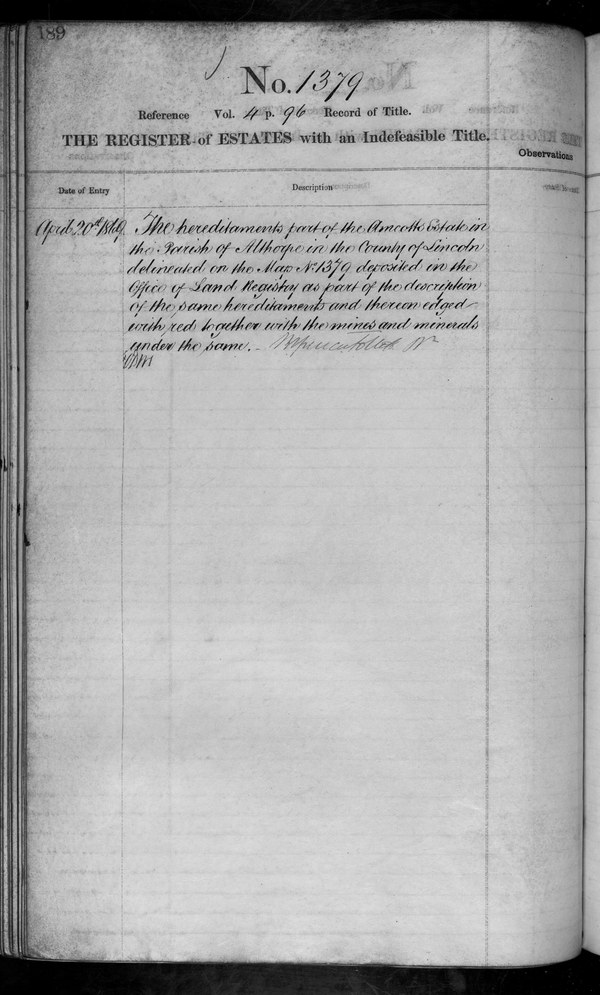 189
No. 1379
Reference Vol. 4 p. 96 Record of Title.
THE REGISTER of ESTATES with an Indefeasible Title.
Observations
Date of Entry
Description
April 20th 1869
The hereditaments part of the Amcotts Estate in
the Parish of Althorpe in the County of Lincoln
delineated on the Map No 1379 deposited in the
Office of Land Registry as part of the description
of the same hereditaments and thereon edged
with red together with the mines and minerals
under the same.